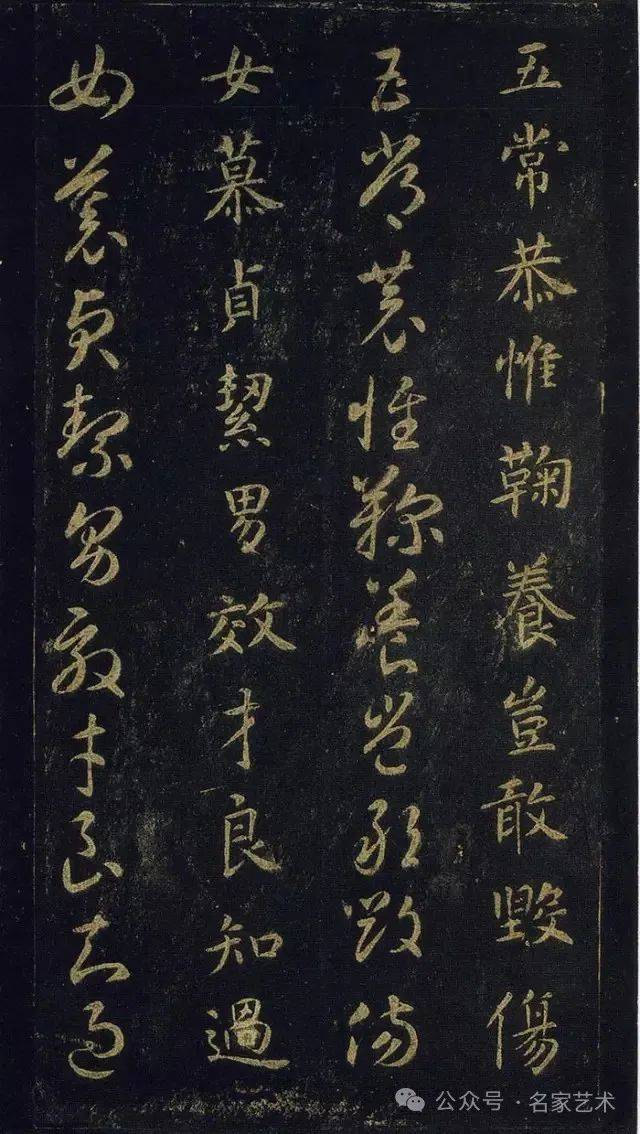 五常恭惟鞠養豈敢毀傷
五常恭惟鞠養豈敢毀傷
女慕貞絜男效才良知過
女慕貞絜男效才良知過
公众号 · 名家艺术